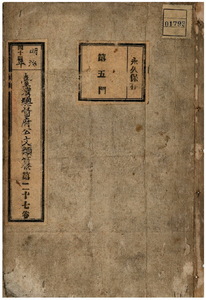 01792
永久保存
第五門
明治
四十年
臺灣總督府公文類纂第二十七卷